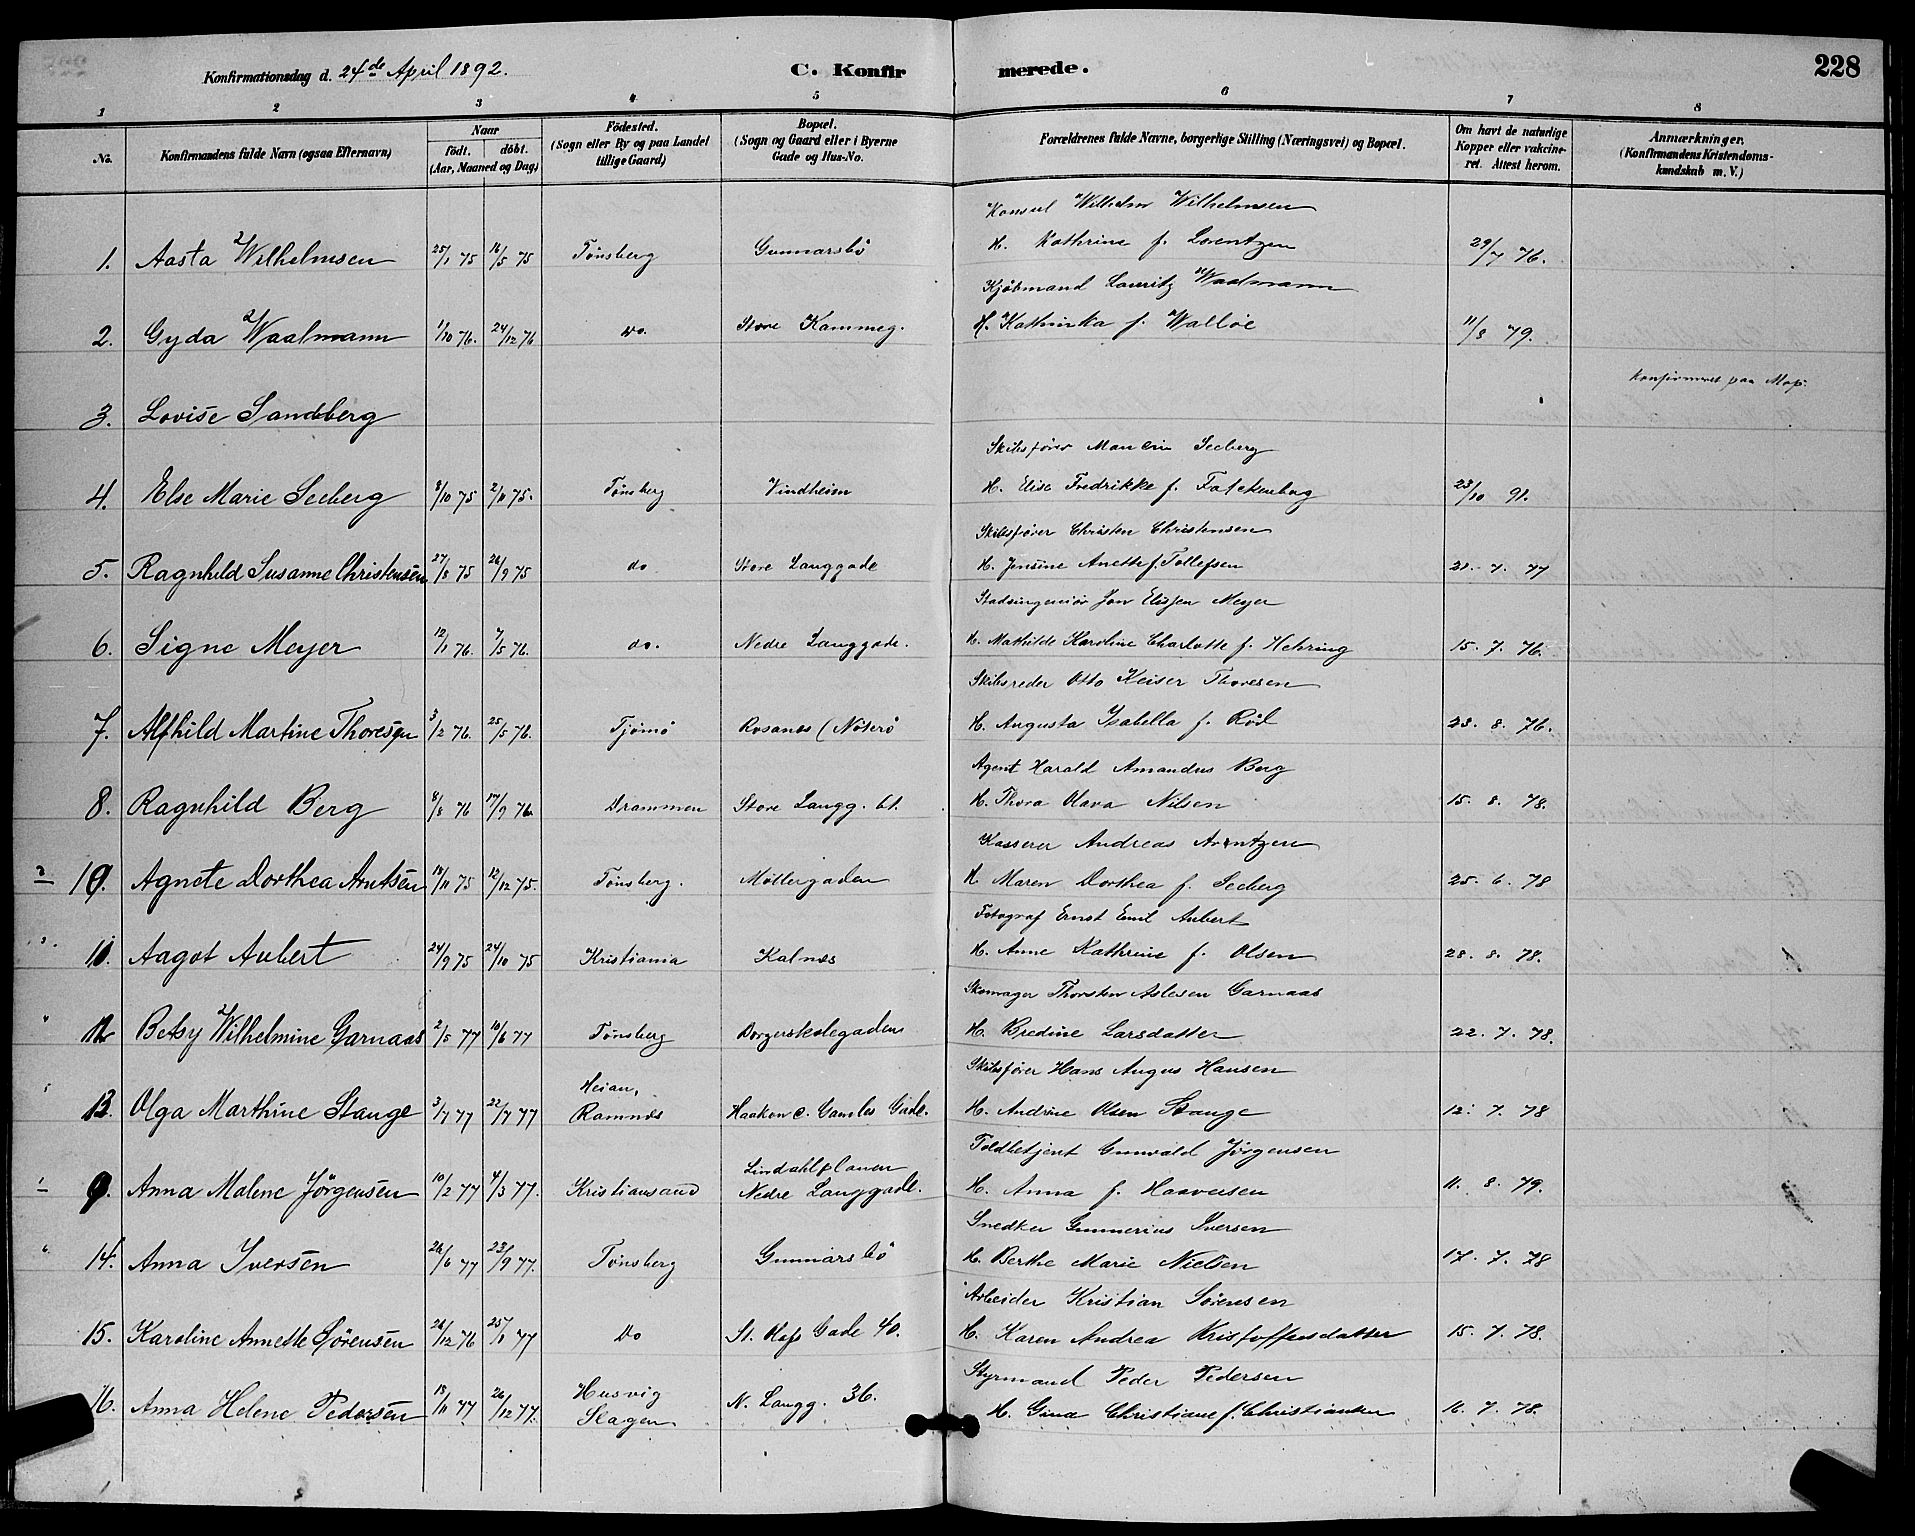 Konfirmationsdag d. 24de April 1892.
C. Konfirmerede.
228
1 2 3 4 5 6 7 8
No.
Konfirmandens fulde Navn (ogsaa Efternavn)
Naar
födt. döbt.
(Aar, Maaned og Dag)
Födested.
(Sogn eller By og paa Landet
tillige Gaard)
Bopæl.
(Sogn og Gaard eller i Byerne
Gade og Hus-No.
Forældrenes fulde Navne, borgerlige Stilling (Næringsvei) og Bopæl.
Om havt de naturlige
Kopper eller vakcine-
ret. Attest herom.
Anmærkninger.
(Konfirmandens Kristendoms-
kundskab m. V.)
Konsul Wilhelm Wilhelmsen
1. Aasta Wilhelmsen 25/1 75 16/5 75 Tönsberg Gunnarsbö H. Kathrine f. Lorentzen 29/7 76.
Kjöbmand Lauritz Waalmann
2. Gyda Waalmann 1/10 76. 24/12 76 Do. Store Kammeg. H. Kathinka f. Walløe 11/8 79.
Konfirmeret paa
3. Lovise Sandberg
Skibsfører Seeberg
4. Else Marie Seeberg 8/10 75 2/11 75. Tönsberg Vindheim H. Elise Fredrikke f. Falckenberg 23/10 91.
Skibsfører Christen Christensen
5. Ragnhild Susanne Christensen 27/8 75 26/9 75 do Store Langgade H. Jensine Anette f. Tollefsen 28. 7. 77
Stadsingeniör Jon Elisjen Meyer
6. Signe Meyer 12/1 76. 7/5 76. do. Nedre Langgade. H. Mathilde Karoline Charlotte f. Hehring 15. 7. 76.
Skibsreder Otto Keiser Thoresen
7. Alfhild Martine Thoresen 3/2 76. 25/5 76. Tjömö Rosanes (Nöterö H. Augusta Isabella f. Röd 23. 8. 76.
Agent Harald Amandus Berg
8. Ragnhild Berg 8/8 76 17/9 76. Drammen Store Langg. 61. H. Thora Olava Nilsen 15. 8. 78.
Kasserer Andreas Arntzen
10. Agnete Dorthea Arntsen 18/11 75 12/12 75. Tönsberg. Möllergaden H. Maren Dorthea f. Seeberg 25. 6. 78
Fotograf Ernst Emil Aubert
11. Aagot Aubert 24/9 75 24/10 75 Kristiania Kalnes H. Anne Kathrine f. Olsen 28. 8. 78.
Skomager Thorsten Aslesen Garnaas
12 Betsy Wilhelmine Garnaas 2/5 77 10/6 77 Tönsberg Borgerskolegaden H. Bredine Larsdatter 22. 7. 78.
Skibsfører Hans Angus Hansen
13. Olga Marthine Stange 3/7 77 22/7 77 Heian, Ramnes Haakon d. Gamles Gade. H. Andrine Olsen Stange 12. 7. 78
Toldbetjent Gunvald Jörgensen
9. Anna Malene Jörgensen 10/2 77 4/3 77. Kristiansand Lindahlplanen Nedre Langgade. H. Anna f. Haaversen 11. 8. 79.
Snedker Gunnerius Iversen
14. Anna Iversen 26/6 77 23/9 77. Tönsberg Gunnarsbö H. Berthe Marie Nielsen 17. 7. 78
Arbeider Kristian Sörensen
15. Karoline Annette Sörensen 26/12 76 25/1 77 Do St. Olafs Gade 40. H. Karen Andrea Kristoffersdatter 15. 7. 78.
Styrmand Peder Pedersen
16. Anna Helene Pedersen 18/11 77 26/12 77. Husvig Slagen N. Langg. 36. H. Gina Christiane f. Christiansen 16. 7. 78.